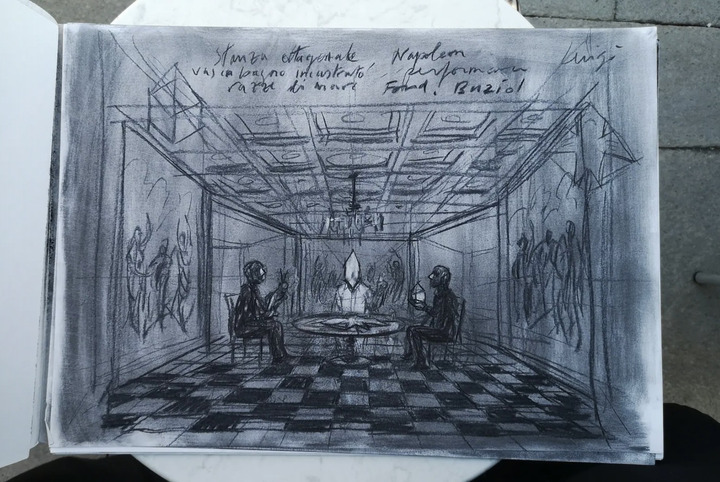 Stanza ottagonale Napoleon Luigi
vasca bagno incastrato performance
razze di mare Fond. Buziol